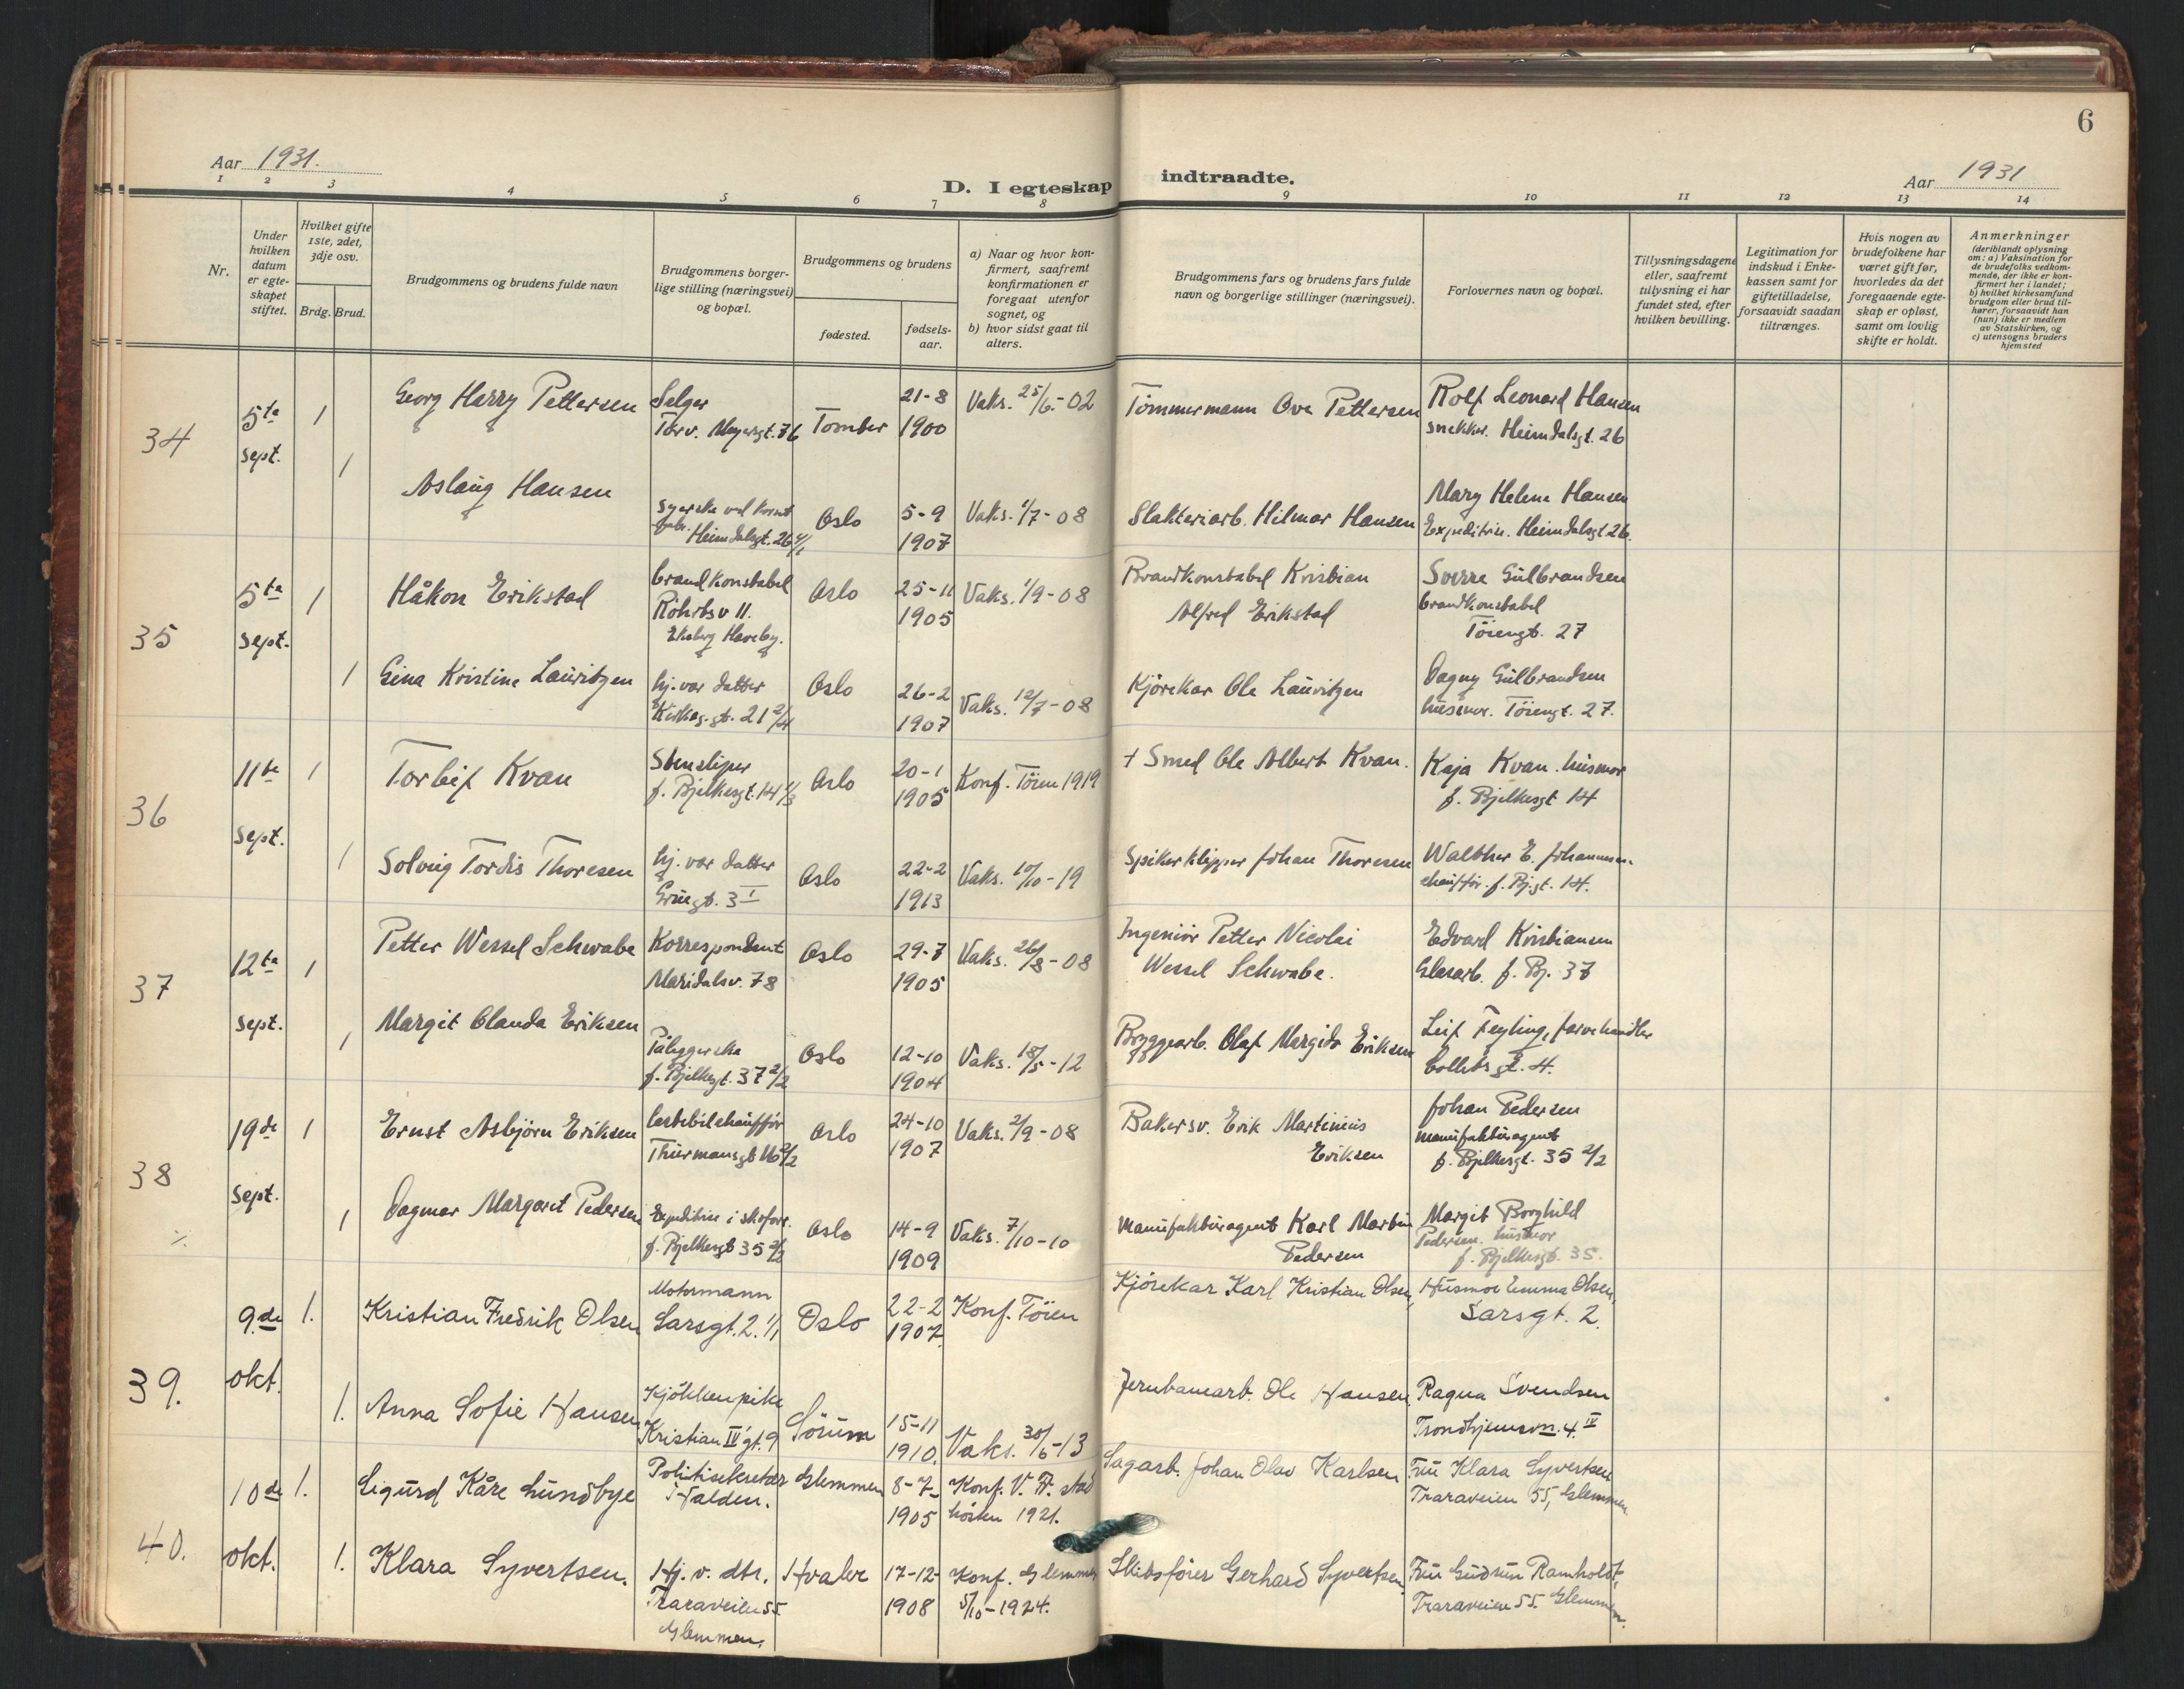 6
Aar 1931.
D. I egteskap indtraadte.
Aar 1931
1 2 3 4 5 6 7 8 9 10 11 12 13 14
Nr.
Under
hvilken
datum
er egte-
skapet
stiftet.
Hvilket gifte
1ste, 2det,
3dje osv.
Brdg. Brud.
Brudgommens og brudens fulde navn
Brudgommens borger-
lige stilling (næringsvei)
og bopæl.
Brudgommens og brudens
fødested.
fødsels-
aar.
a) Naar og hvor kon-
firmert, saafremt
konfirmationen er
foregaat utenfor
sognet, og
b) hvor sidst gaat til
alters.
Brudgommens fars og brudens fars fulde
navn og borgerlige stillinger (næringsvei).
Forlovernes navn og bopæl.
Tillysningsdagene
eller, saafremt
tillysning ei har
fundet sted, efter
hvilken bevilling.
Legitimation for
indskud i Enke-
kassen samt for
giftetilladelse,
forsaavidt saadan
tiltrænges.
Hvis nogen av
brudefolkene har
været gift før,
hvorledes da det
foregaaende egte-
skap er opløst,
samt om lovlig
skifte er holdt.
Anmerkninger
(deriblandt oplysning
om: a) Vaksination for
de brudefolks vedkom-
mende, der ikke er kon-
firmert her i landet;
b) hvilket kirkesamfund
brudgom eller brud til-
hører, forsaavidt han
(hun) ikke er medlem
av Statskirken, og
c) utensogns bruders
hjemsted
34
5te
sept.
1
Georg Harry Pettersen
Selger
Torv. Meyersgt. 36
Tomter
21-8
1900
Vaks. 25/6-02
Tømmermann Ove Pettersen
Rolf Leonard Hansen
snekker. Heimdalsgt. 26
1
Aslaug Hansen
Syerske ved
Heimdalsgt. 26
Oslo
5-9
1907
Vaks. 1/7-08
Slakteriarb. Hilmar Hansen
Mary Helene Hansen
Expeditrise. Heimdalsgt 26.
35
5te
sept.
1
Håkon Erikstad
brandkonstabel
Röhrtsv 11.
Ekeberg Haveby.
Oslo
25-11
1905
Vaks. 1/9-08
Brandkonstabel Kristian
Alfred Erikstad
Sverre Gulbrandsen
brandkonstabel
Töiengt. 27
1
Gina Kristine Lauritzen
hj. vær. datter
21 2/4
Oslo
26-2
1907
Vaks. 12/7-08
Kjörekar Ole Lauritzen
Dagny Gulbrandsen
husmor. Töiengt. 27.
36
11te
sept.
1
Torleif Kvan
Stensliper
J. Bjelkesgt. 14 1/3
Oslo
20-1
1905
Konf. Töien 1919
+ Smed Ole Albert Kvan.
Kaja Kvan. husmor
J. Bjelkesgt 14
1
Solveig Tordis Thoresen
hj. vær datter
Gruegt. 3 I
Oslo
22-2
1913
Vaks. 10/10-19
Spikerklipper Johan Thoresen
Walther E. Johannesen.
chaufför. J. Bj.gt. 14.
37
12te
sept.
1
Petter Wessel Schwabe
Korrespondent
Maridalsv. 78
Oslo
29-7
1905
Vaks. 26/8-08
Ingeniör Petter Nicolai
Wessel Schwabe.
Edvard Kristiansen
Glasarb. J. Bj. 37
1
Margit Olanda Eriksen
Påleggerske
J. Bjelkegt. 37 2/2
Oslo
12-10
1904
Vaks. 18/5-12
Bryggearb. Olaf Eriksen
Leif Feyling, farvehandler
Colletsgt. 4.
38
19de
sept.
1
Ernst Asbjörn Eriksen
lastebilchaufför
Thurmansgt
Oslo
24-10
1907
Vaks. 2/9-08
Bakersv. Erik Martinius
Eriksen
Johan Pedersen
manufakturagent
J. Bjelkesgt. 35 2/2
1
Dagmar Margaret Pedersen
Expeditrise i skoforr.
J. Bjelkesgt 35 2/2
Oslo
14-9
1909
Vaks. 7/10-10
Manufakturagent Karl Martin
Pedersen
Margit Borghild
Pedersen. husmor
J. Bjelkesgt. 35.
39.
9.de
okt.
1.
Kristian Fredrik Olsen
Motormann
Sarsgt. 2. 1/1
Oslo
22-2
1907.
Konf. Töien
Kjörekar Karl Kristian Olsen,
Husmor Emma Olsen,
Sarsgt. 2.
1.
Anna Sofie Hansen
Kjökkenpike
Kristian IV gt. 9
Sörum
15-11
1910.
Vaks. 30/6-13
Jernbanearb. Ole Hansen
Ragna Svendsen
Trondhjemsvn. 4. IV
40.
10de
okt.
1.
Sigurd Kåre Lundbye
Politisekretær
Halden.
Glemmen
8-7-
1905
Konf. V. Fr. stad
hösten 1921.
Sagarb. Johan Olav Karlsen
Fru Klara Syvertsen
Traraveien 55, Glemmen
1.
Klara Syvertsen.
Hj. v. dtr.
Traraveien 55.
Glemmen.
Hvaler
17-12-
1908
Konf. Glemmen
5/10-1924.
Skibsförer Gerhard Syvertsen.
Fru Gudrun Ramholdt,
Traraveien 55. Glemmen.